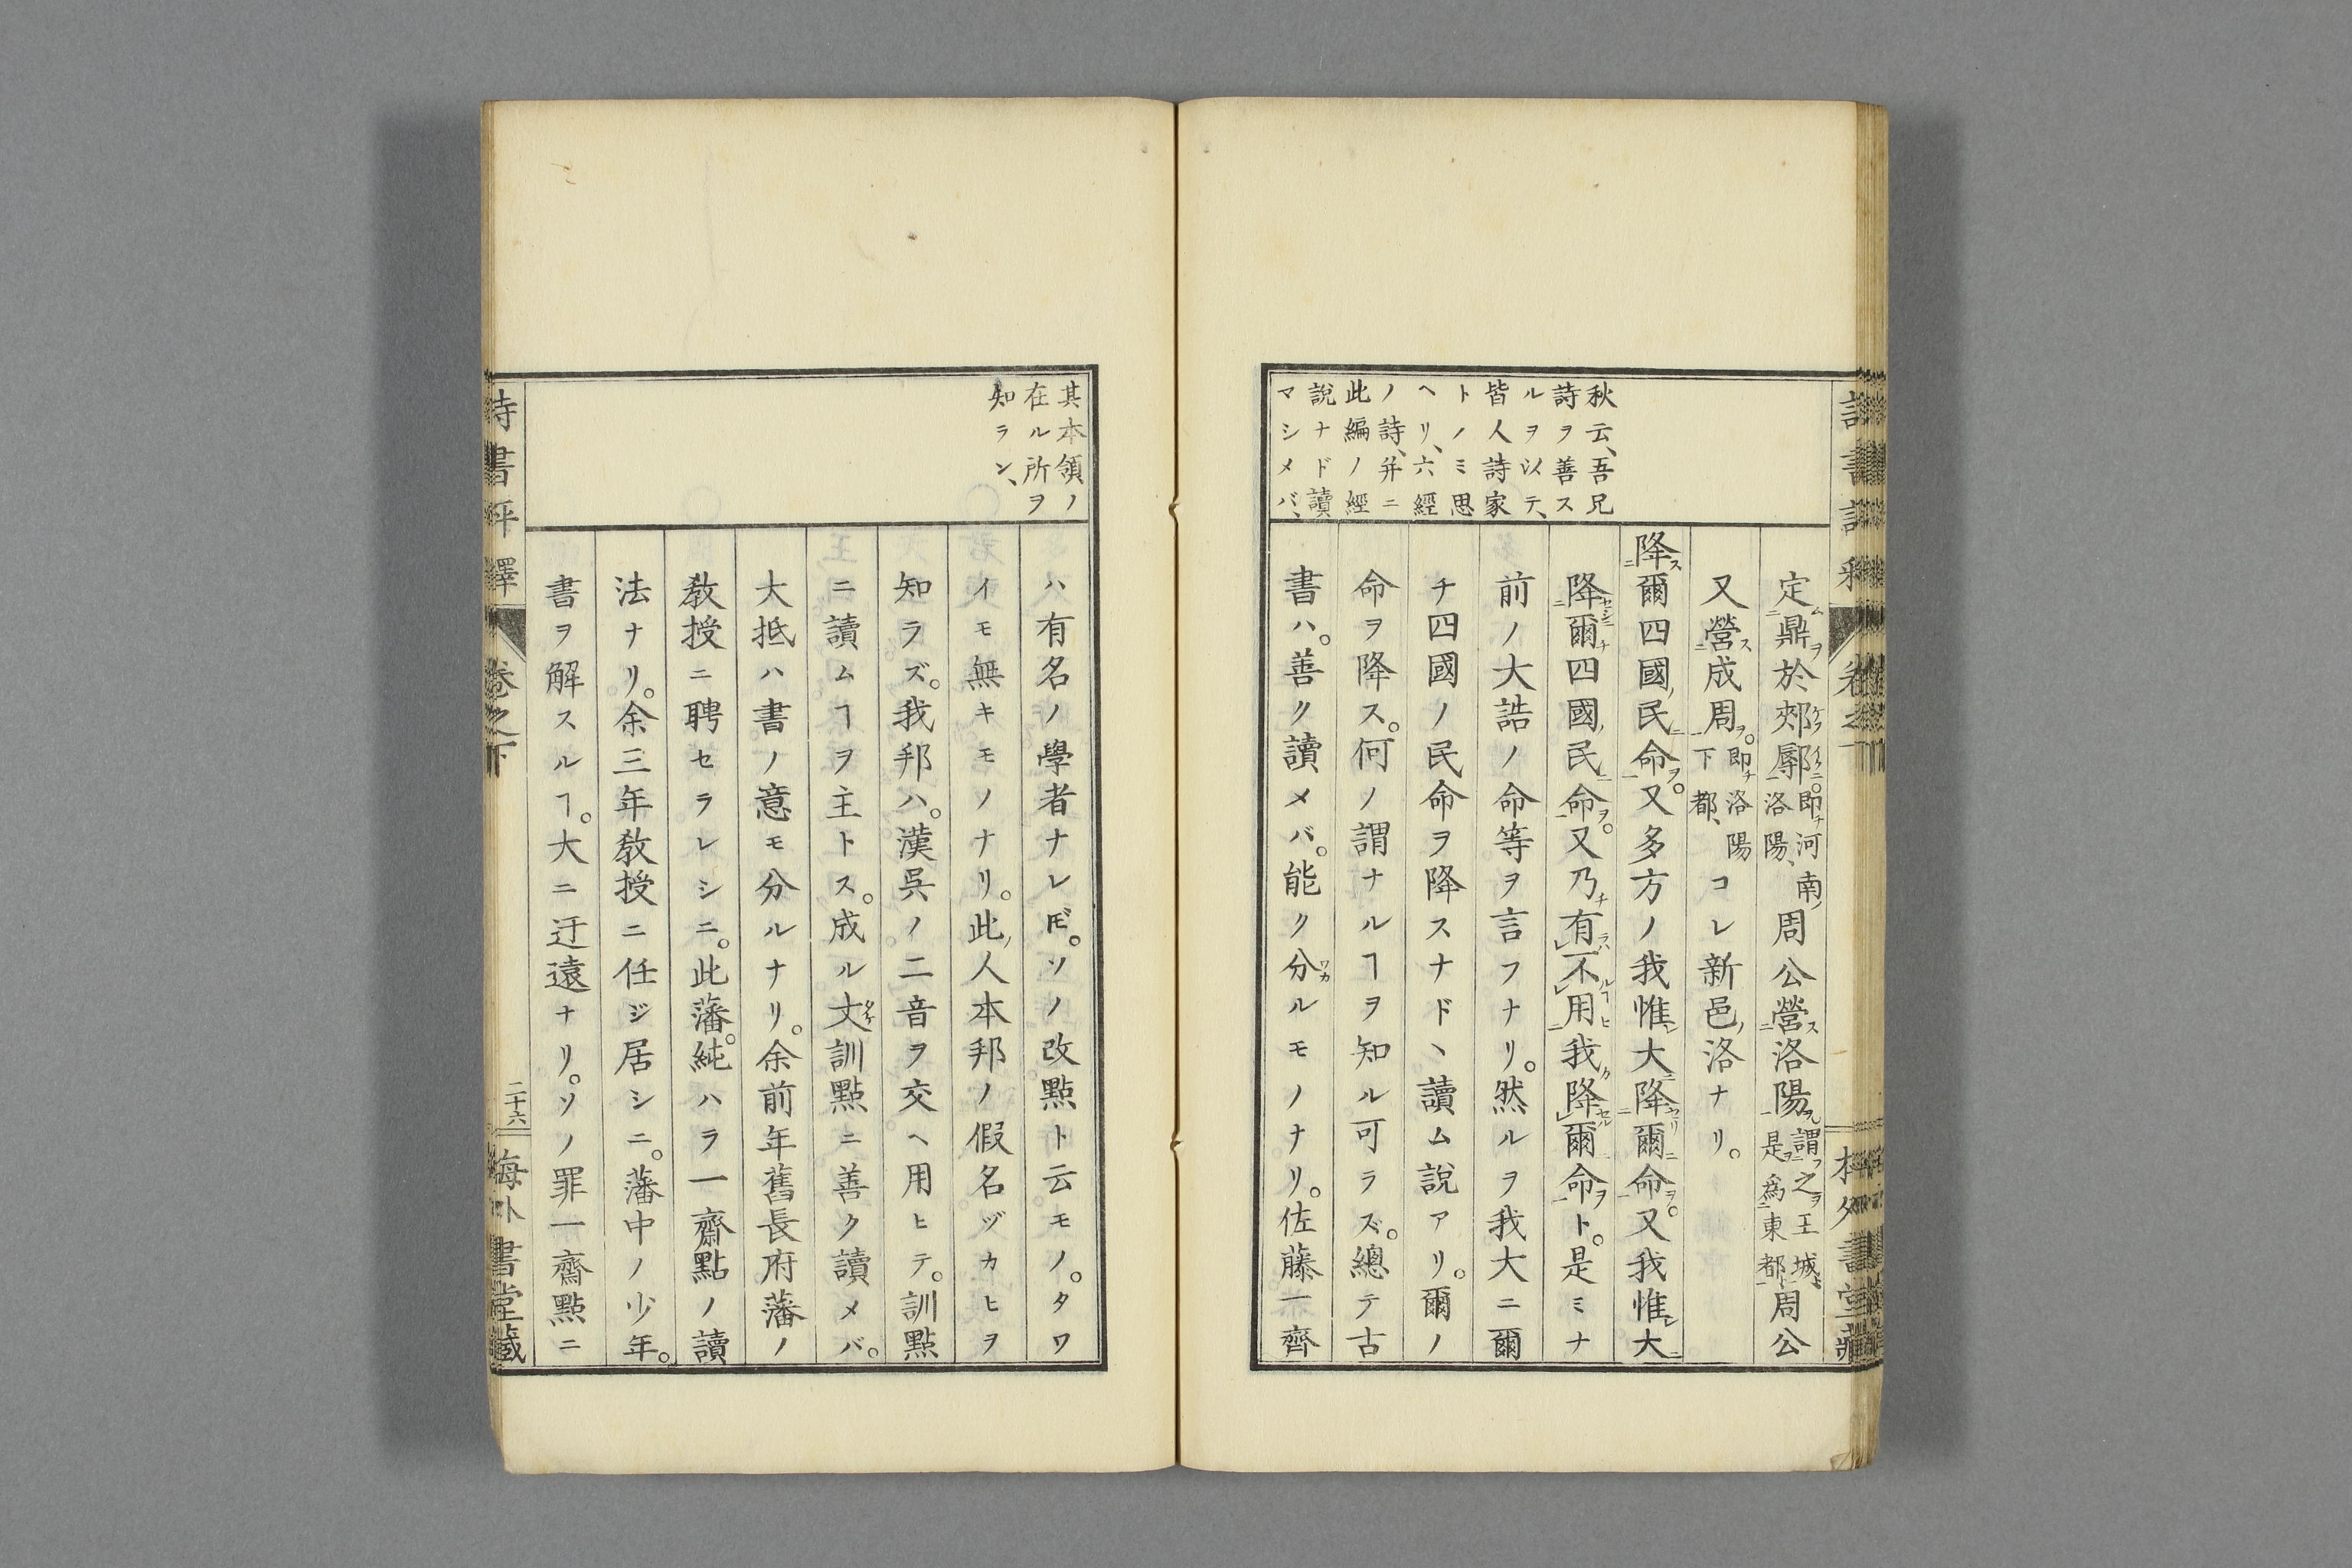 秋云、吾兄
詩ヲ善ス
ルヲ以テ、
皆人詩家
トノミ思
ヘリ、六經
ノ詩、并ニ
此編ノ經
説ナド讀
マシメバ、
定ム鼎ヲ於郟鄏ニ。即チ河南、洛陽、周公營ス洛陽ヲ謂フ之ヲ王城ト、是ヲ爲東都ト周公
又營ス成周ヲ。即チ洛陽下都、コレ新邑、洛ナリ。
降ス爾四國ノ民ニ命ヲ。又多方ノ我惟レ大ニ降セリ爾ニ命ヲ。又我惟レ大ニ
降セシニ爾チ四國ノ民ニ命ヲ。又乃チ有ラバ不ルヿ用ヒ我カ降セル爾命ヲト。是ミナ
前ノ大誥ノ命等ヲ言フナリ。然ルヲ我大ニ爾
チ四國ノ民命ヲ降スナドヽ讀ム説アリ。爾ノ
命ヲ降ス。何ノ謂ナルヿヲ知ル可ラズ。總テ古
書ハ。善ク讀メバ。能ク分ルモノナリ。佐藤一齊
其本領ノ
在ル所ヲ
知ラン、
ハ有名ノ學者ナレ𪜈。ソノ改點ト云モノ。タワ
イモ無キモノナリ。此ノ人本邦ノ假名ヅカヒヲ
知ラズ。我邦ハ。漢呉ノ二音ヲ交ヘ用ヒテ。訓點
ニ讀ムヿヲ主トス。成ル丈訓點ニ善ク讀メバ。
大抵ハ書ノ意モ分ルナリ。余前年舊長府藩ノ
教授ニ聘セラレシニ。此藩。純ハラ一齋點ノ讀
法ナリ。余三年教授ニ任ジ居シニ。藩中ノ少年。
書ヲ解スルヿ。大ニ迂遠ナリ。ソノ罪一齋點ニ
詩書評釋
卷之下
二十六
梅外書堂藏